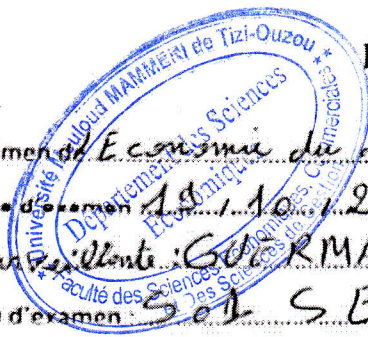 Université Mouloud MAMMERI de Tizi-Ouzou
Département des Sciences
Economiques
Faculté des Sciences Economiques, Commerciales
Des Sciences de Gestion
Economie du
d'examen 19.10.2
GUERMA
d'examen: S01 SE